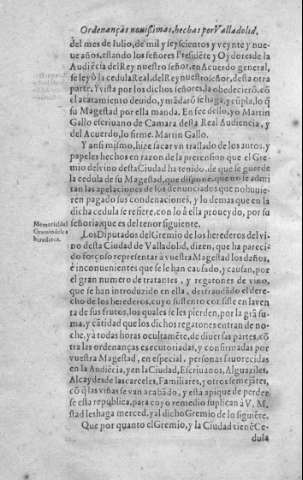 Ordenanças nouissimas, hechas por Valladolid,
del mes de Iulio, de mil y seyscientos y veynte y nue-
ue años, estando los señores Presidẽte y Oydores de la
Audiẽcia del Rey nuestro señor, en Acuerdo general,
se leyò la cedula Real, del Rey nuestro señor, desta otra
parte. Y vista por los dichos señores, la obedecierõ, cõ
el acatamiento deuido, y mãdarõ se haga, y cũpla, lo q̃
su Magestad por ella manda. En fee dello, yo Martin
Gallo escriuano de Camara desta Real Audiencia, y
del Acuerdo, lo firmè. Martin Gallo.
Y ansi mismo, hize sacar vn traslado de los autos, y
papeles hechos en razon de la pretension que el Gre-
mio del vino desta Ciudad ha tenido, de que se guarde
la cedula de su Magestad, que dispone, que no se admi-
tan las apelaciones de los denunciados que no huuie-
ren pagado sus condenaciones, y lo demas que en la
dicha cedula se refiere, con lo â ella proueydo, por su
señoria, que es del tenor siguiente.
Memorial del
Gremio de la
herederos.
Los Diputados del Gremio de los herederos del vi-
no desta Ciudad de Valladolid, dizen, que ha pareci-
do forçoso representar à vuestra Magestad los daños,
è inconuenientes que se le han causado, y causan, por
el gran numero de tratantes, y regatones de vino,
que se han introduzido en ella, defraudãdo el dere-
cho de los herederos, cuyo sustento consiste en la ven
ta de sus frutos, los quales se les pierden, por la grã su-
ma, y cãtidad que los dichos regatones entran de no-
che, y à todas horas ocultamẽte, de diuersas partes, cõ
tra las ordenanças executoriadas, y confirmadas por
vuestra Magestad, en especial, personas fauorecidas
en la Audiẽcia, y en la Ciudad, Escriuanos, Alguaziles,
Alcaydes de las carceles, Familiares, y otros semejãtes,
cõ q̃ las viñas se van acabãdo, y està à pique de perder
se esta republica, para cuyo remedio suplican à V. M.
sea dẽ les haga merced, y al dicho Gremio de lo siguiẽte.
Que por quanto el Gremio, y la Ciudad tienẽ Ce-
dula